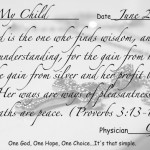 My Child Date June 2
d is the one who finds wisdom, an
understanding, for the gain from
e gain from silver and her profit
Her ways are ways of pleasantness
aths are peace. (Proverbs 3:13-
Physician
One God, One Hope, One Choice...It's that simple.